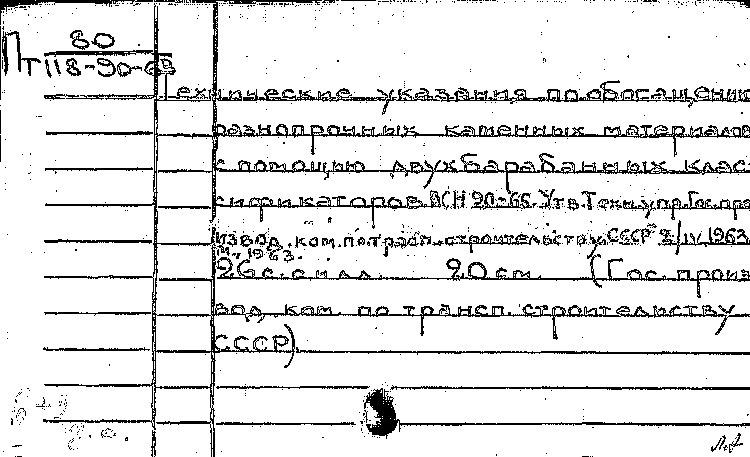 80
Пт 118-90-63
Технические указания по обогащению
разнопрочных каменных материалов
с помощью двухбарабанных клас-
сификаторов ВСН 90-66. Утв. Техн. упр. Гос. про
извод. ком. по трансп. строительству СССР 2/IV 1963
М., 1963.
26 с. с илл. 20 см. (Гос. произ
вод. ком. по трансп. строительству
СССР).